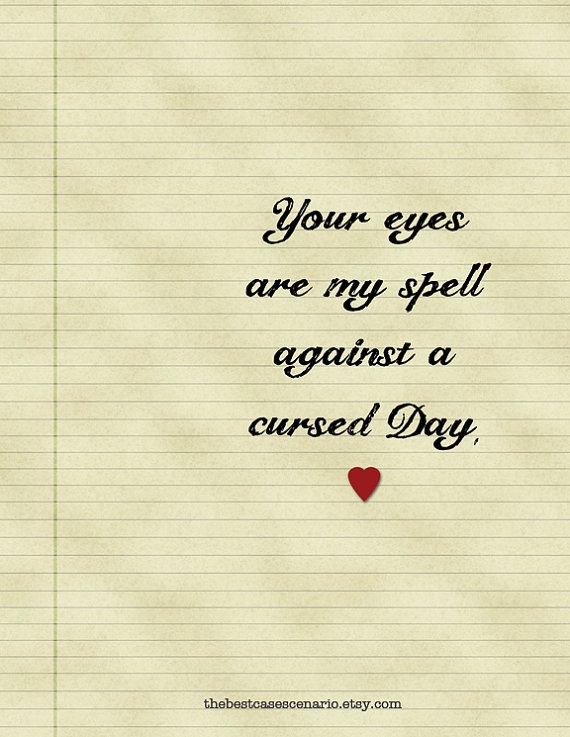 Your eyes
are my spell
against a
cursed Day,
thebestcasescenario.etsy.com